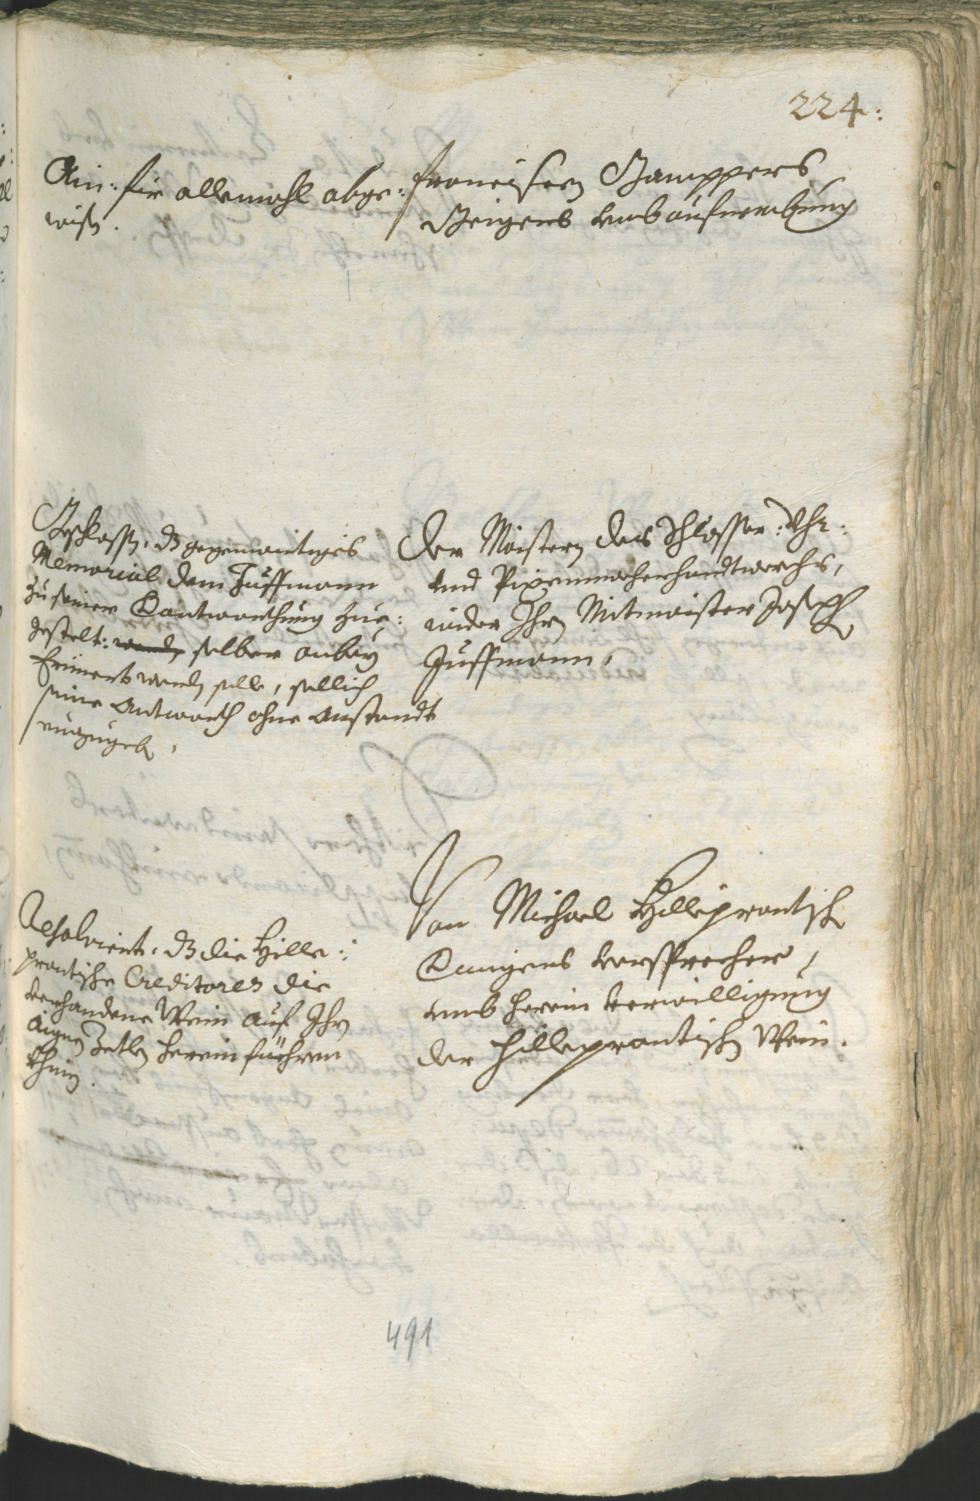 224.
Ain: für allemahl abge:
wisen.
Franciscen Gamppers
Geigens umb aufnembung
Beschlossen, dz gegenwärtiges
Memorial dem Huffmann
zu seiner Beantworthung zue:
gestelt: werden selber anbey
Erinnert werden solle, sellich
seine Antworth ohne Anstandt
einzugeben,
Der Maistern des Schlosser: Uhr:
und Pixenmacherhandtwerchs,
wider Ihren Mitmaister Joseph
Huffmann,
Resolviert, dz die Hille:
prantische Creditores die
verhandene Wein auf Ihren
aigen Zetlen herein füehren
thuen.
Von Michael Hilleprantisch
vorsprecher,
umb herein verwilligung
der hilleprantischen Wein.
491